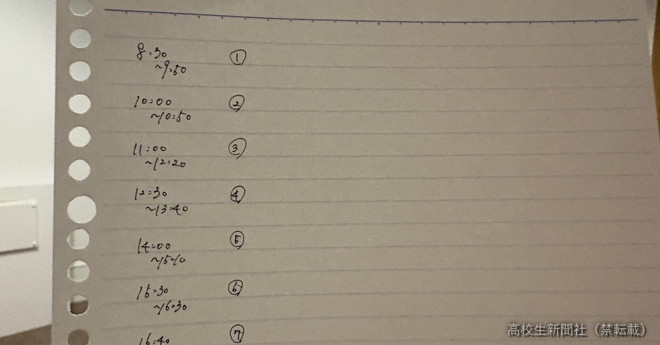 8:30 ①
~9:50
10:00 ②
~10:50
11:00 ③
~12:20
12:30 ④
~13:40
14:00 ⑤
~15:10
15:30 ⑥
~16:30
16:40 ⑦
高校生新聞社（禁転載）